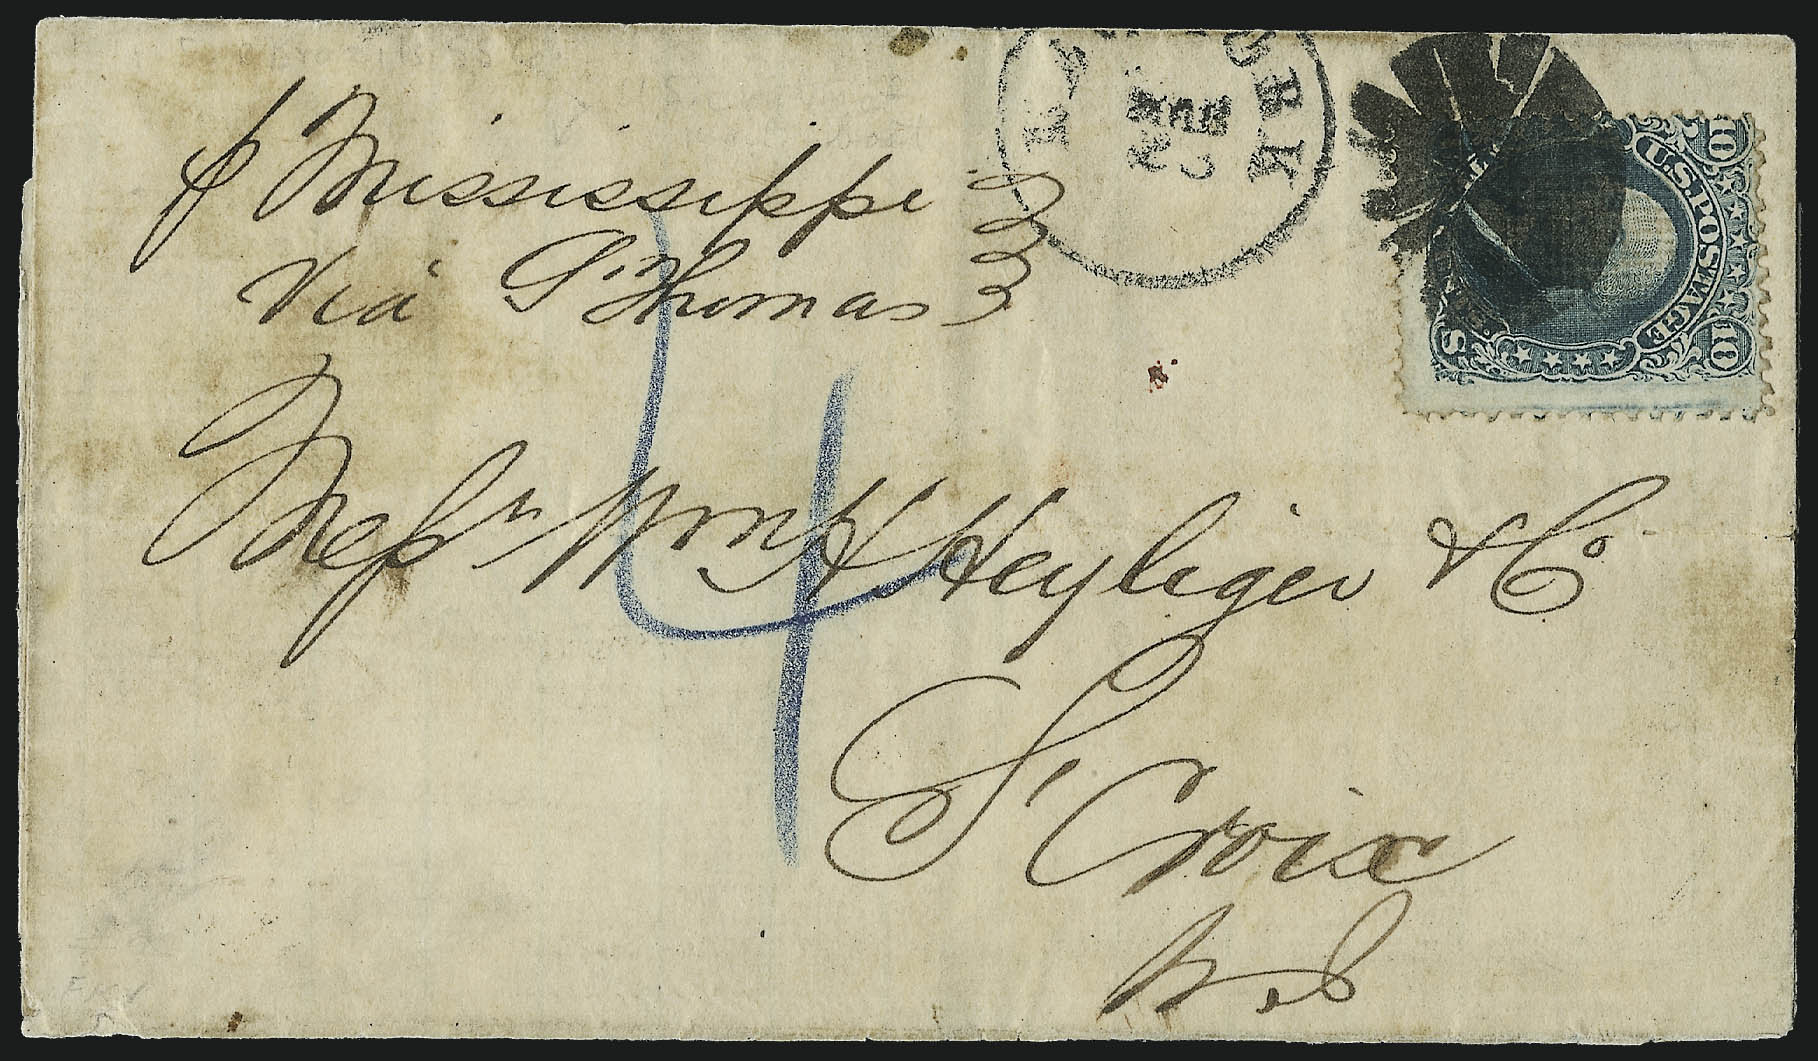 p Mississippi
Via St Thomas
4
Messrs Wm H Heyliger & Co
St Croix
W.I.
NEW YORK
MAR
U.S. POSTAGE
10 10
S